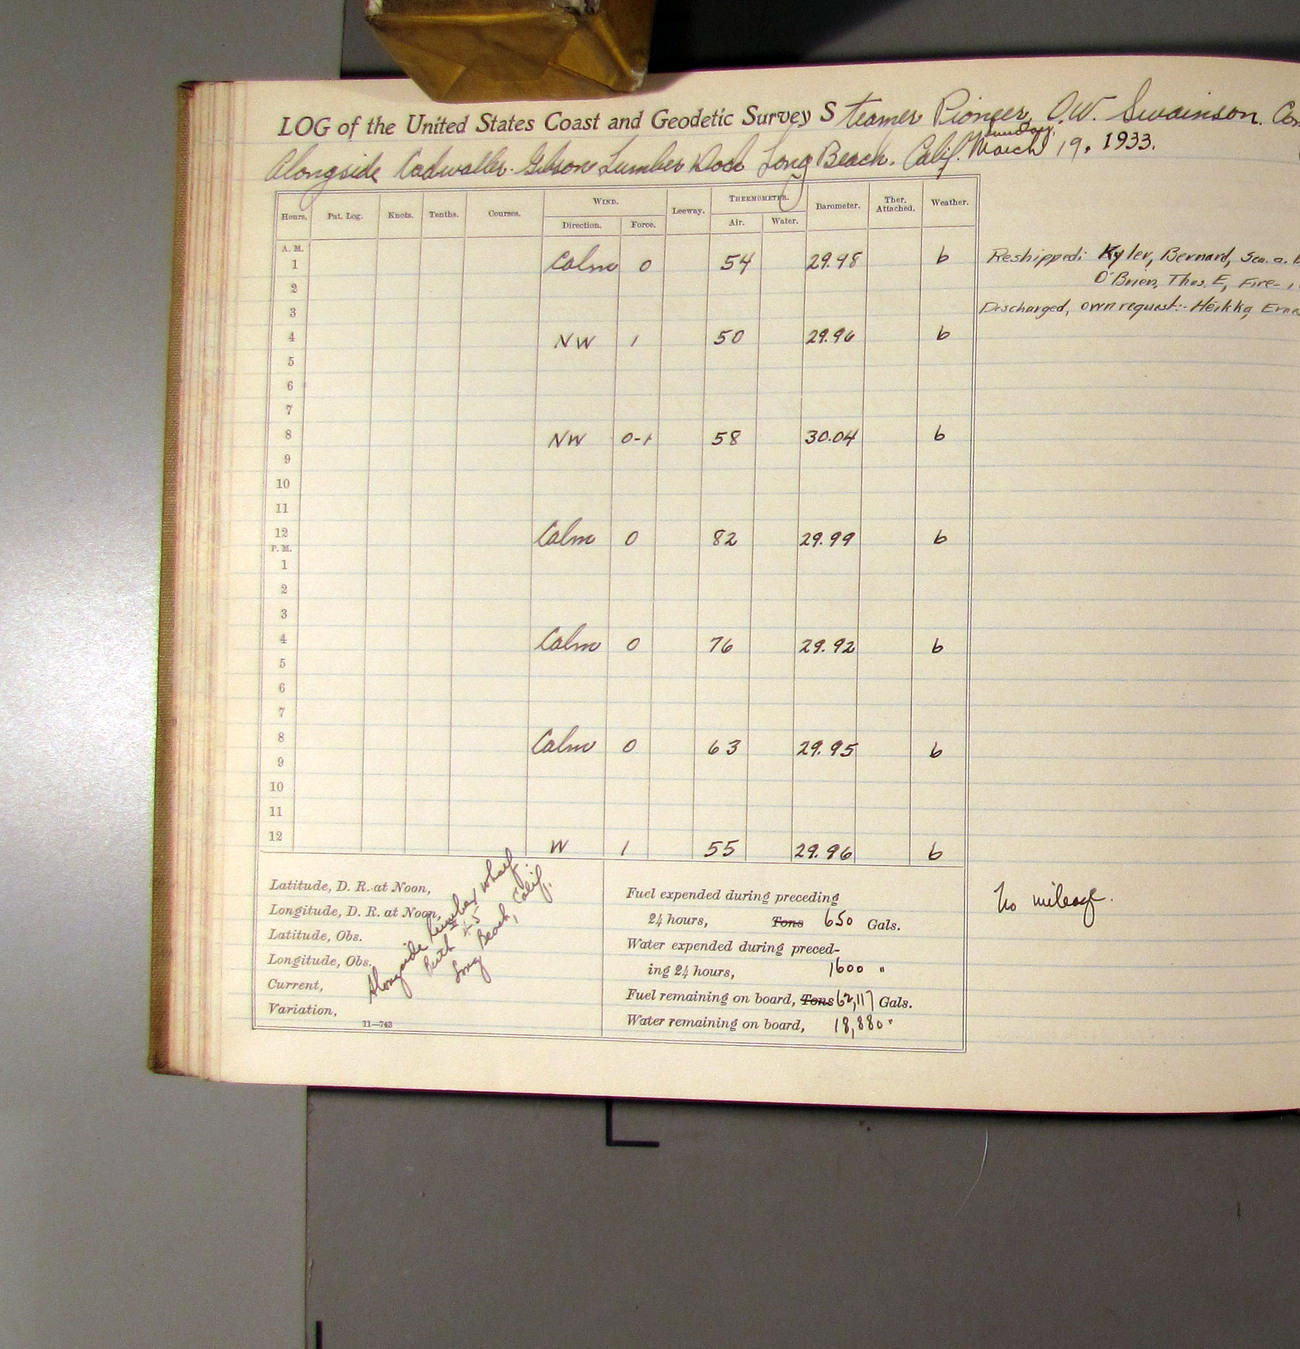 LOG of the United States Coast and Geodetic Survey Steamer Pioneer, O.W. Swainson. Com
Alongside Cadwaller-Gibson Lumber Dock Long Beach. Calif. Sunday, March 19, 1933.
Hours. Pat. Log. Knots. Tenths. Courses. WIND. Direction. Force. Leeway. THERMOMETER. Air. Water. Barometer. Ther. Attached. Weather.
A. M.
1 Calm 0 54 29.98 b
2
3
4 NW 1 50 29.96 b
5
6
7
8 NW 0-1 58 30.04 b
9
10
11
12 Calm 0 82 29.99 b
P. M.
1
2
3
4 Calm 0 76 29.92 b
5
6
7
8 Calm 0 63 29.95 b
9
10
11
12 W 1 55 29.96 b
Reshipped: Kyler, Bernard, Sea.
O'Brien, Thos. E, Fire-
Discharged, own request:- Heikka,
Latitude, D. R. at Noon,
Longitude, D. R. at Noon,
Latitude, Obs.
Longitude, Obs.
Current,
Variation,
Alongside lumber wharf
Long Beach, Calif.
11—743
Fuel expended during preceding
24 hours, Tons 650 Gals.
Water expended during preced-
ing 24 hours, 1600 "
Fuel remaining on board, Tons 62,117 Gals.
Water remaining on board, 18,880 "
No mileage.